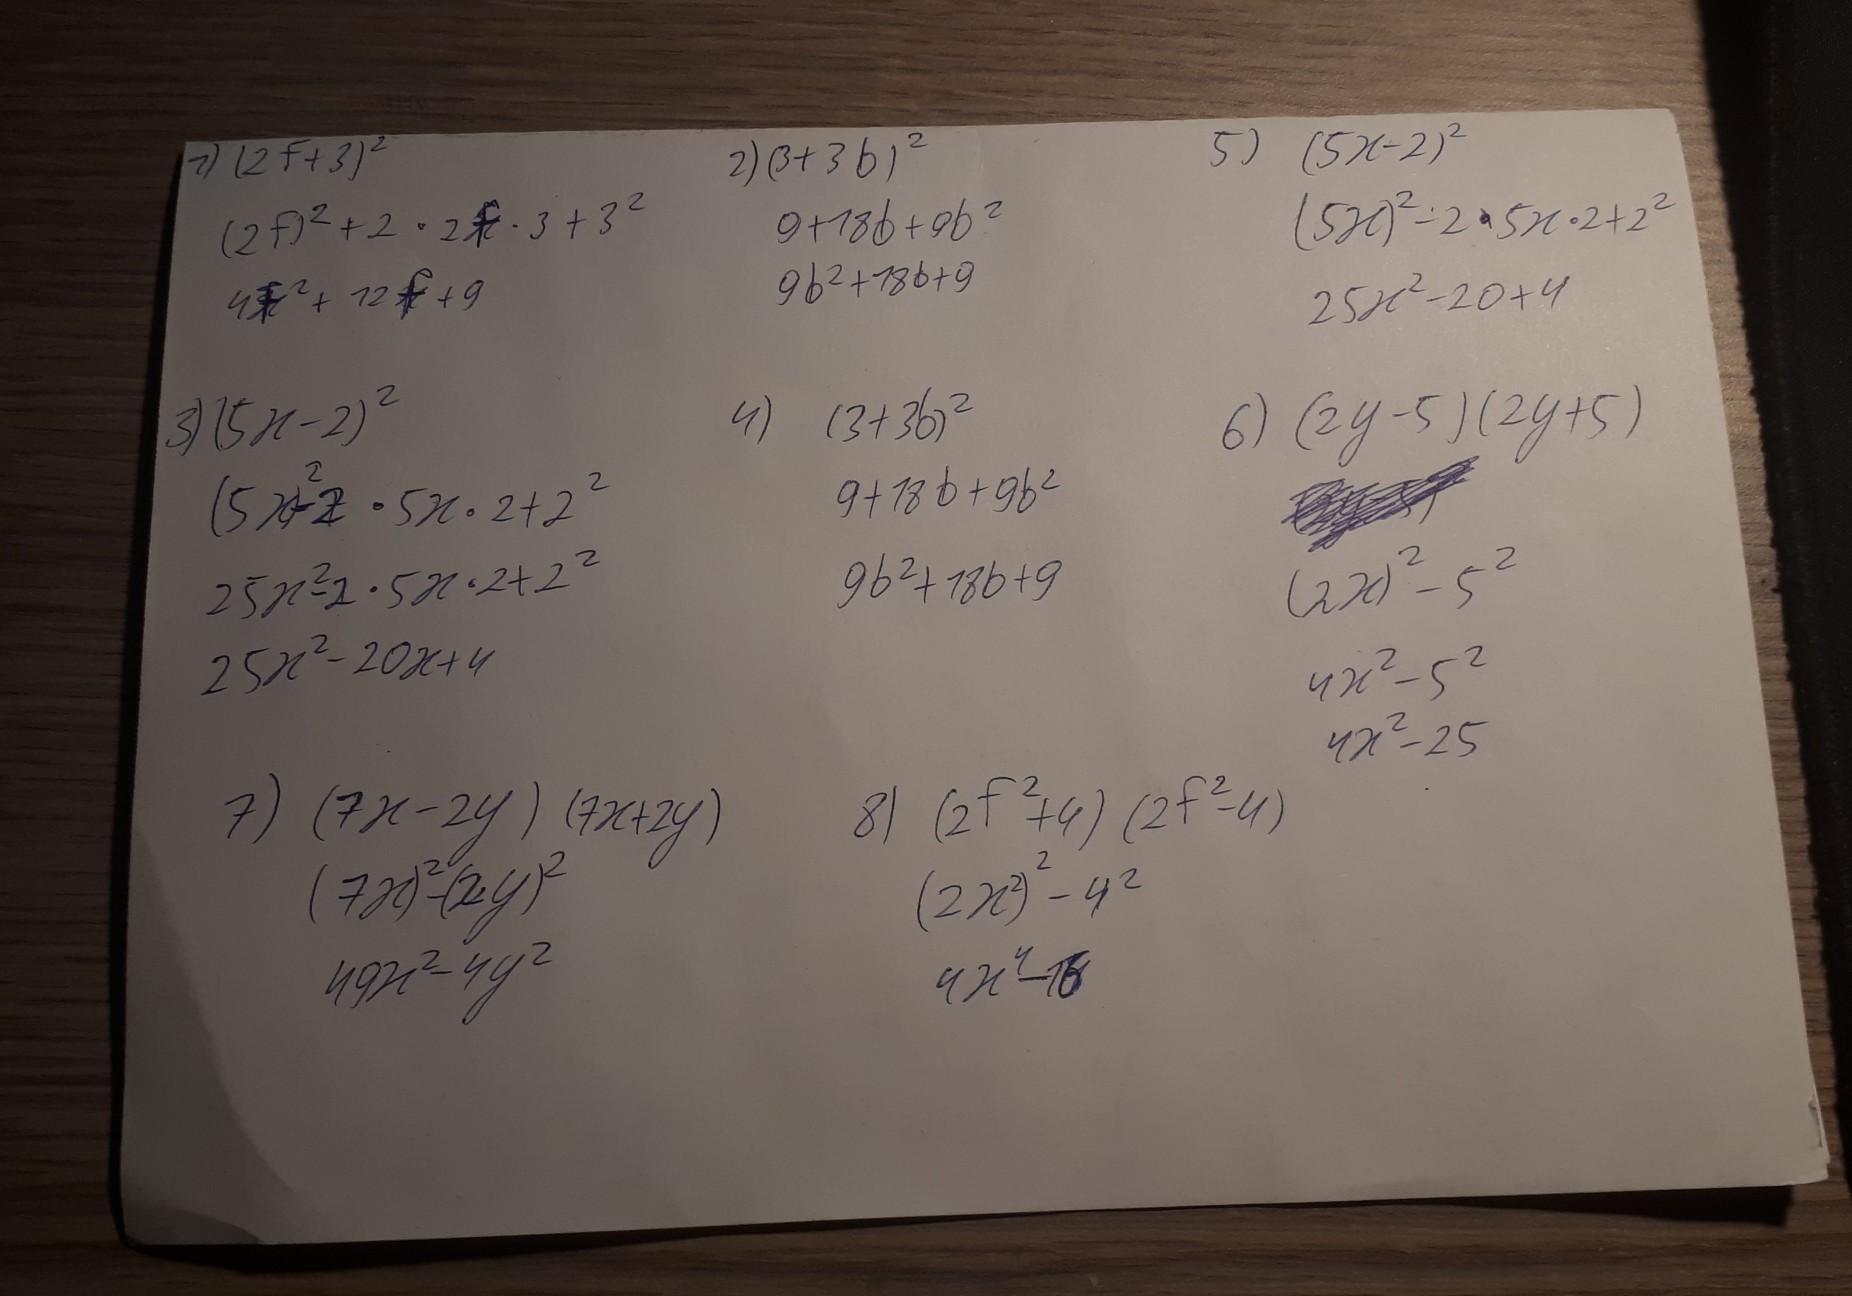 1) (2f+3)²
(2f)²+2·2f·3+3²
4f²+12f+9
2) (3+3b)²
9+18b+9b²
9b²+18b+9
5) (5x-2)²
(5x)²-2·5x·2+2²
25x²-20+4
3) (5x-2)²
(5x)²-2·5x·2+2²
25x²-2·5x·2+2²
25x²-20x+4
4) (3+3b)²
9+18b+9b²
9b²+18b+9
6) (2y-5)(2y+5)
(2x)²-5²
4x²-5²
4x²-25
7) (7x-2y)(7x+2y)
(7x)²-(2y)²
49x²-4y²
8) (2f²+4)(2f²-4)
(2x²)²-4²
4x⁴-16